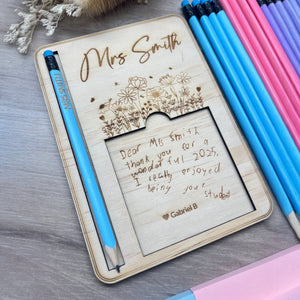 Mrs Smith
Dear Mrs Smith
thank you for a
wonderful 2025,
I really enjoyed
being your
student
Gabriel B